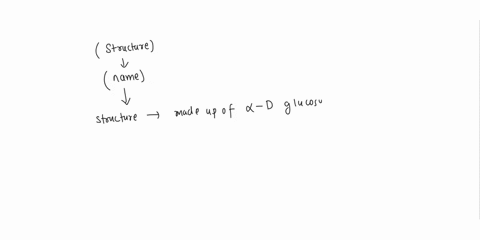 (Structure)
↓
(name)
↓
structure → made up of α-D glucos